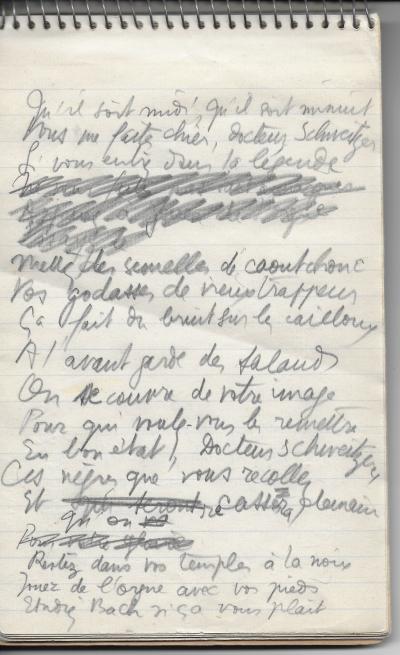 Qu'il soit midi, qu'il soit minuit
Vous me faites chier, Docteur Schweitzer
Si vous entrez dans la légende
Mettez des semelles de caoutchouc
Vos godasses de vieux trappeur
Ça fait du bruit sur les cailloux
A l'avant garde des salauds
On se couvre de votre image
Pour qui voulez-vous les remettre
En bon état, Docteur Schweitzer
Ces nègres que vous recollez
Et qu'on cassera demain
Restez dans vos temples à la noix
Jouez de l'orgue avec vos pieds
Bach si ça vous plait